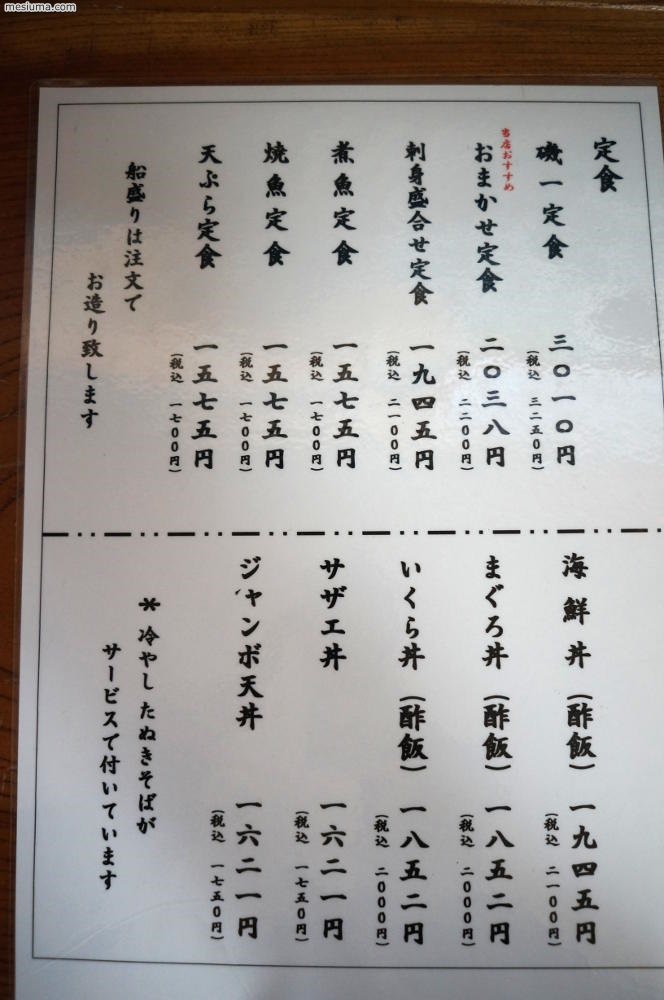 mesiuma.com
定食
磯一定食 三〇一〇円
(税込 三二五〇円)
当店おすすめ
おまかせ定食 二〇三八円
(税込 二二〇〇円)
刺身盛合せ定食 一九四五円
(税込 二一〇〇円)
煮魚定食 一五七五円
(税込 一七〇〇円)
焼魚定食 一五七五円
(税込 一七〇〇円)
天ぷら定食 一五七五円
(税込 一七〇〇円)
船盛りは注文で
お造り致します
海鮮丼(酢飯) 一九四五円
(税込 二一〇〇円)
まぐろ丼(酢飯) 一八五二円
(税込 二〇〇〇円)
いくら丼(酢飯) 一八五二円
(税込 二〇〇〇円)
サザエ丼 一六二一円
(税込 一七五〇円)
ジャンボ天丼 一六二一円
(税込 一七五〇円)
*冷やしたぬきそばが
サービスで付いています